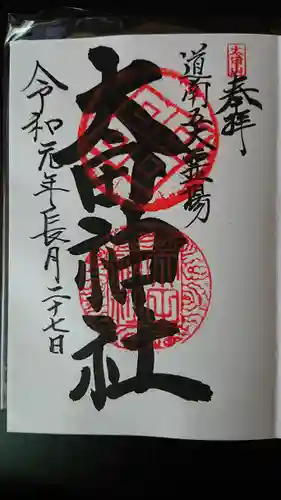 太田山
奉拝
道南五大霊場
太田神社
令和元年長月二十七日